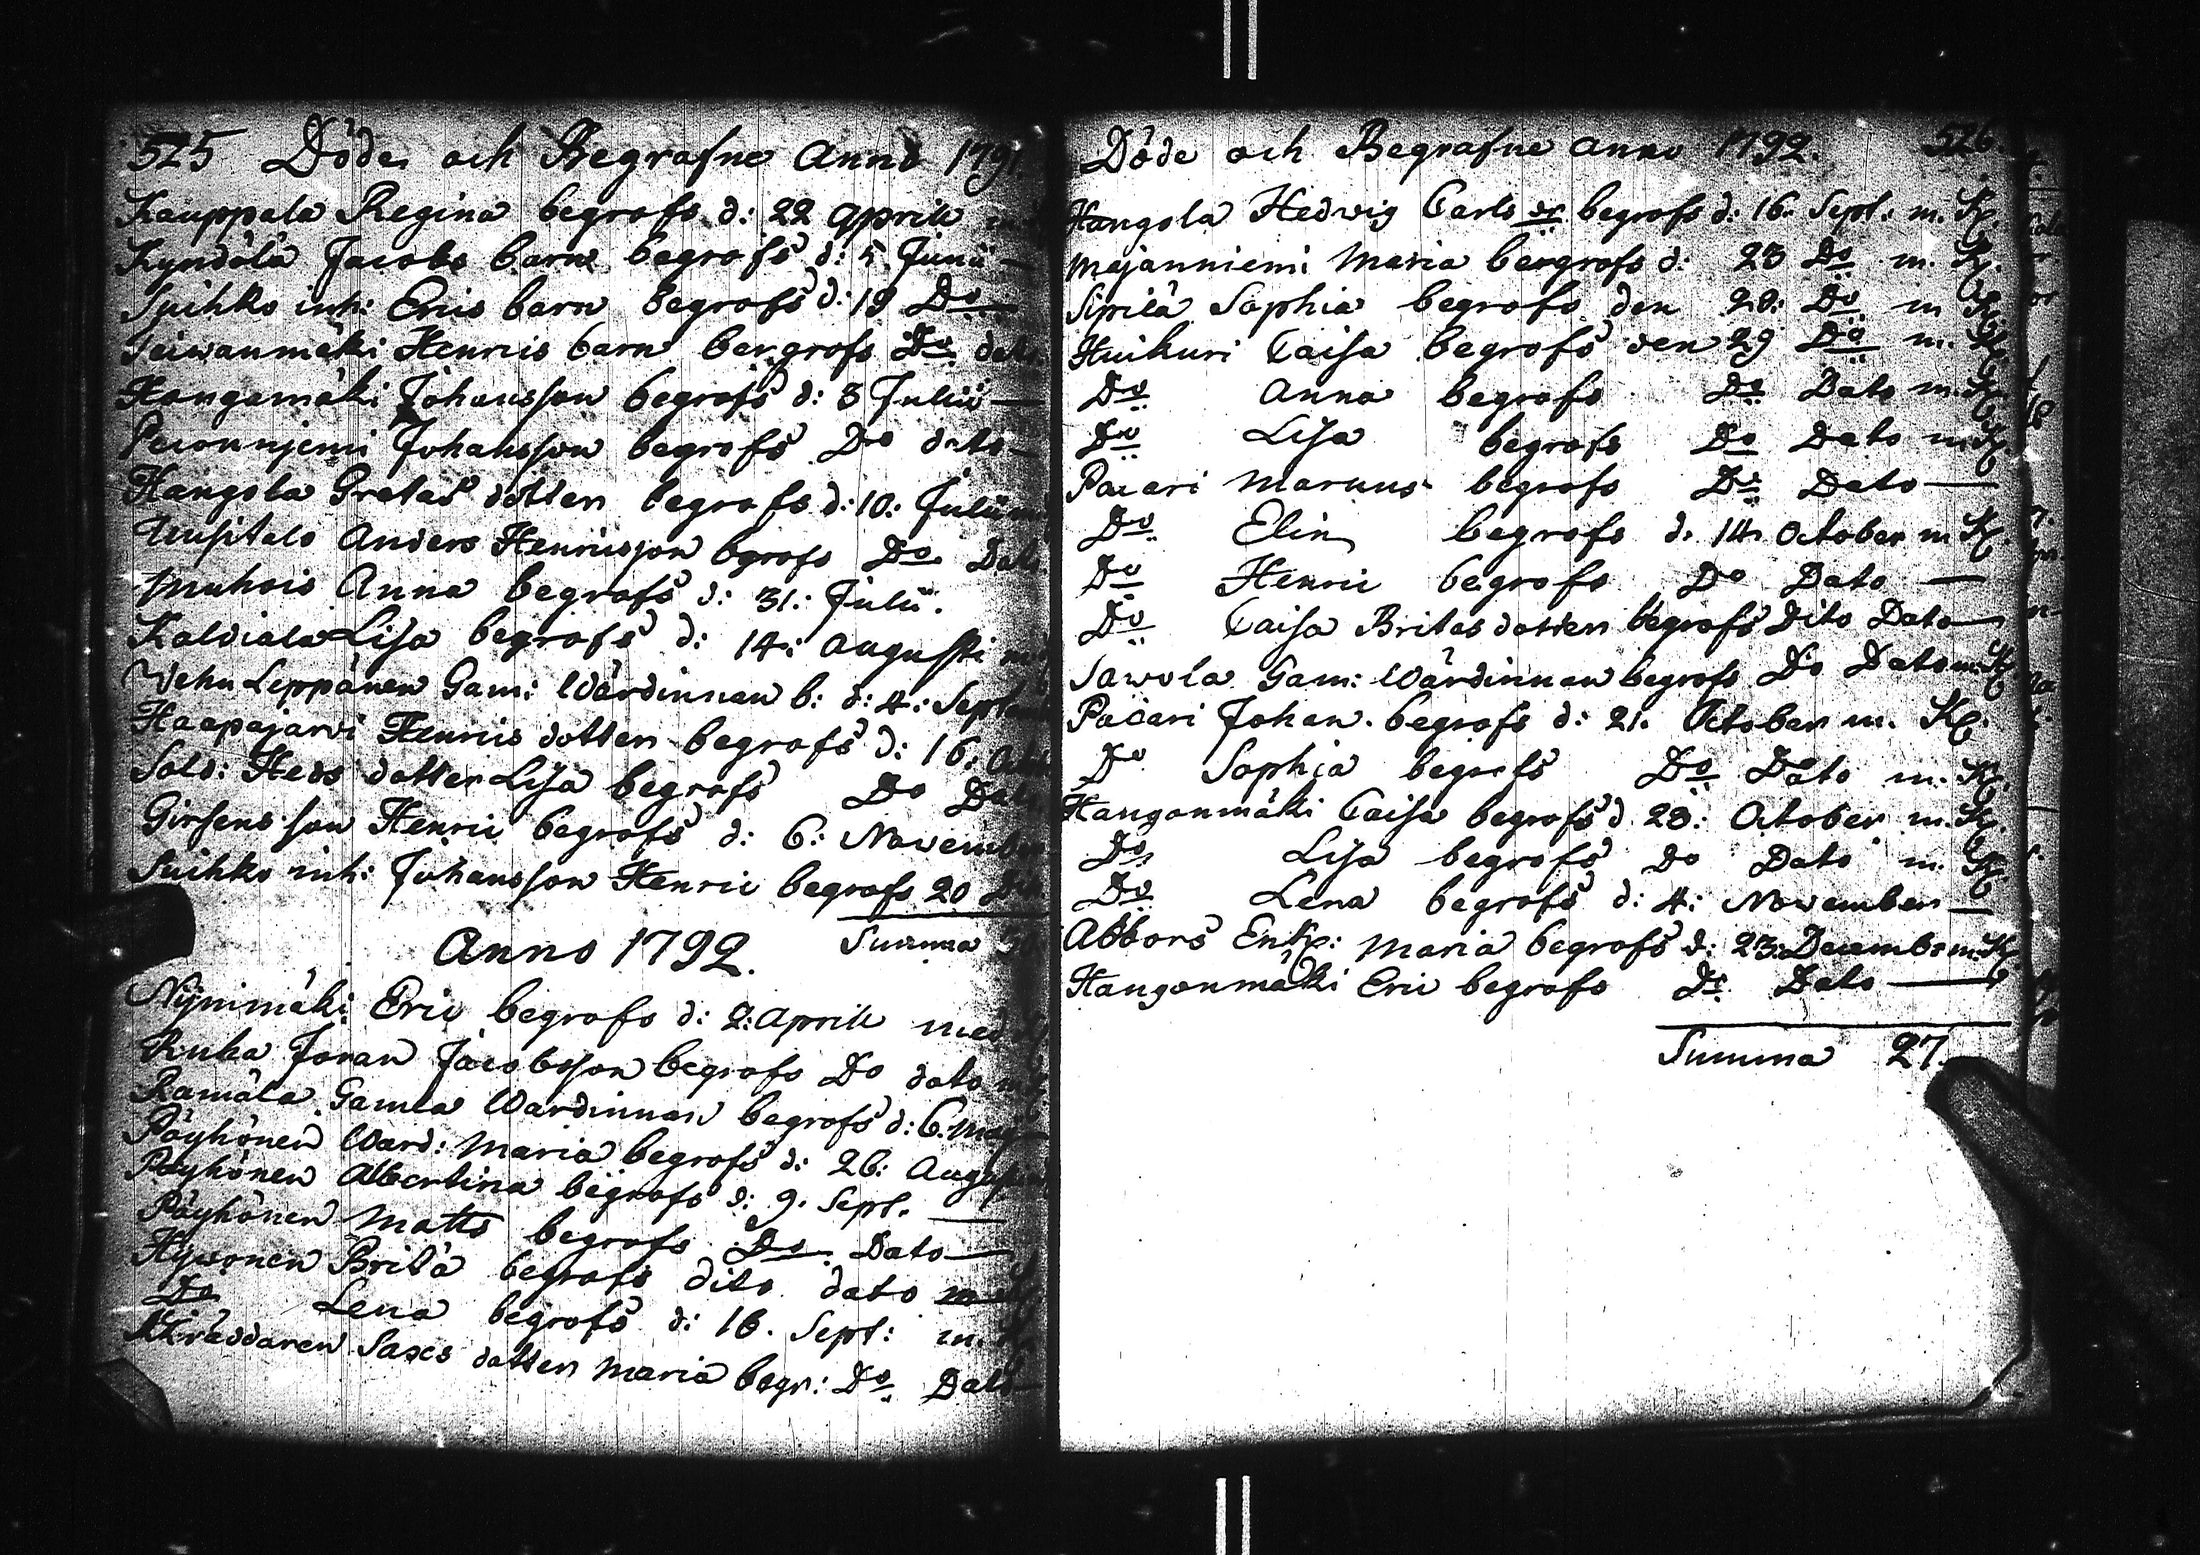 525 Döde och Begrafne Anno 1791.
Kauppala Regina begrofs d: 22 Aprill
Kyndölä Jacobs barn begrofs d: 5 Junii —
Suihko inh: Erics barn begrofs d: 19 Do
Teiwanmäki Henrics barn bergrofs Do dato
Hangamäki Johansson begrofs d: 3 Julii —
Johansson begrofs Do dato —
Hangola Gretas dotter begrofs d: 10: Julii
Uusitalo Anders Henricsson bgrofs Do Dato
Muhois Anna begrofs d: 31: Julii.
Kaldiala Lisa begrofs d: 14: Augusti
Wehu Leppänen Gam: Wärdinnan b: d: 4: Sept
Haapajarvi Henrics dotter begrofs d: 16:
Sold: Heds dotter Lisa begrofs Do Dato
Girsens son Henric begrofs d: 6: November
Suihko inh: Johansson Henric begrofs 20
Summa
Anno 1792.
Nijnimäki Eric begrofs d: 2: Aprill med
Ruha Joran Jacobsson begrofs Do dato
Ramäla Gamla Wardinnan begrofs d: 6. Maji
Pöyhönen Ward: Maria begrofs d: 26: Augusti
Pöyhönen Albertina begrofs d: 9. Sept. —
Pöyhönen Matts begrofs Do Dato —
Hywonen Brita begrofs dito dato
Do Lena begrofs d: 16. Sept: m.
Skräddaren Saxes dotter Maria begr: Do Dato
Döde och Begrafne anno 1792. 526
Hangola Hedwig Carls dr begrofs d: 16. Sept: m. Kl.
Majanniemi Maria bergrofs d: 23 Do m. Kl.
Sipilä Sophia begrofs den 28: Do m Kl.
Huikuri Caisa begrofs den 29 Do m. Kl.
Do Anna begrofs Do Dato m. Kl.
Do Lisa begrofs Do Dato m. Kl.
Pacari Marcus begrofs Do Dato —
Do Elin begrofs d. 14. October m Kl.
Do Henric begrofs Do Dato —
Do Caisa Britas dotter begrofs dito Dato —
Sawola Gam: Wärdinnan begrofs Do Dato m. Kl.
Pacari Johan. begrofs d: 21. October m. Kl.
Do Sophia begrofs Do Dato m. Kl.
Hangonmäki Caisa begrofs d 28: October m. Kl.
Do Lisa begrofs Do Dato m. Kl.
Do Lena begrofs d: 4: November —
Abbors Enk: Maria begrofs d: 23: Decembr m. Kl.
Hangonmäki Eric begrofs Do Dato —
Summa 27.